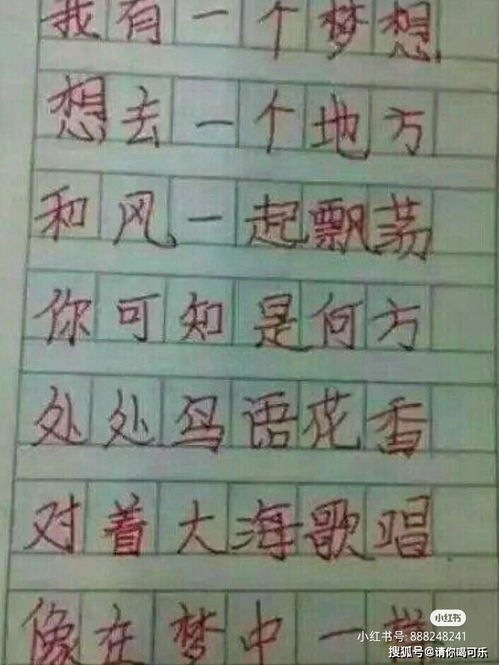 我有一个梦想
想去一个地方
和风一起飘荡
你可知是何方
处处鸟语花香
对着大海歌唱
像在梦中一样
小红书
小红书号: 888248241
搜狐号@请你喝可乐